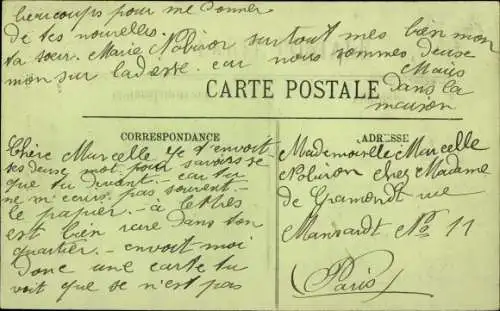 beaucoups pour me donner
de tes nouvelles.
ta soeur. Marie Nobiron surtout mes bien mon
mon sur ladesse. car nous sommes deuse
Marie
dans la
maison
CARTE POSTALE
CORRESPONDANCE
Chère Marcelle je t'envoit
tes deuse mot pour savoirs se
que tu divant. car tu
ne m'ecris pas souvent.
le papier. à lettres
est bien rare dans ton
quartier. envoit moi
donc une carte tu
voit que se n'est pas
ADRESSE
Mademoiselle Marcelle
Nobiron chez Madame
de Gramondt rue
Mansardt No 11
(Paris)